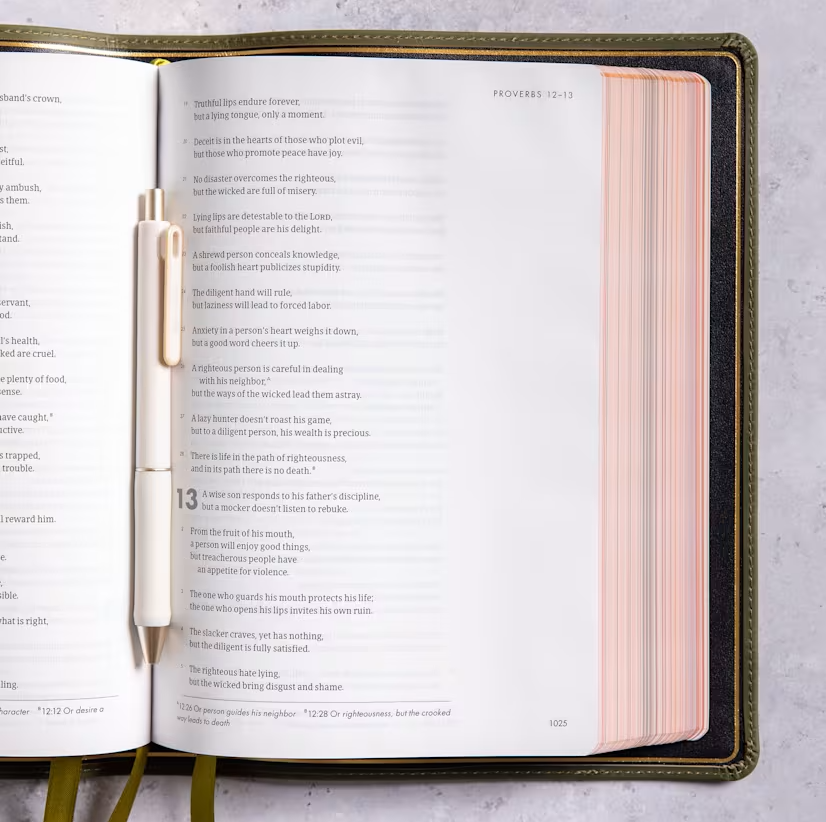 sband's crown,
st,
eitful.
y ambush,
s them.
ish,
tand.
servant,
od.
l's health,
ked are cruel.
e plenty of food,
ense.
ave caught,ᴮ
uctive.
s trapped,
trouble.
l reward him.
e.
sible.
hat is right,
ling.
haracter ᴮ12:12 Or desire a
PROVERBS 12–13
19 Truthful lips endure forever,
but a lying tongue, only a moment.
20 Deceit is in the hearts of those who plot evil,
but those who promote peace have joy.
21 No disaster overcomes the righteous,
but the wicked are full of misery.
22 Lying lips are detestable to the LORD,
but faithful people are his delight.
A shrewd person conceals knowledge,
but a foolish heart publicizes stupidity.
24 The diligent hand will rule,
but laziness will lead to forced labor.
25 Anxiety in a person's heart weighs it down,
but a good word cheers it up.
26 A righteous person is careful in dealing
with his neighbor,ᴬ
but the ways of the wicked lead them astray.
27 A lazy hunter doesn't roast his game,
but to a diligent person, his wealth is precious.
28 There is life in the path of righteousness,
and in its path there is no death.ᴮ
13 A wise son responds to his father's discipline,
but a mocker doesn't listen to rebuke.
2 From the fruit of his mouth,
a person will enjoy good things,
but treacherous people have
an appetite for violence.
3 The one who guards his mouth protects his life;
the one who opens his lips invites his own ruin.
4 The slacker craves, yet has nothing,
but the diligent is fully satisfied.
5 The righteous hate lying,
but the wicked bring disgust and shame.
ᴬ12:26 Or person guides his neighbor ᴮ12:28 Or righteousness, but the crooked
way leads to death
1025